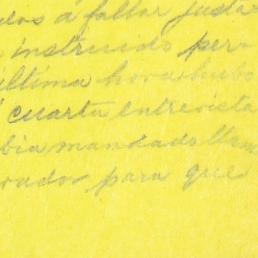 dos á fallar justa
instruido per
última hora hubo
cuarta entrevista
bia mandado llam
rados para que